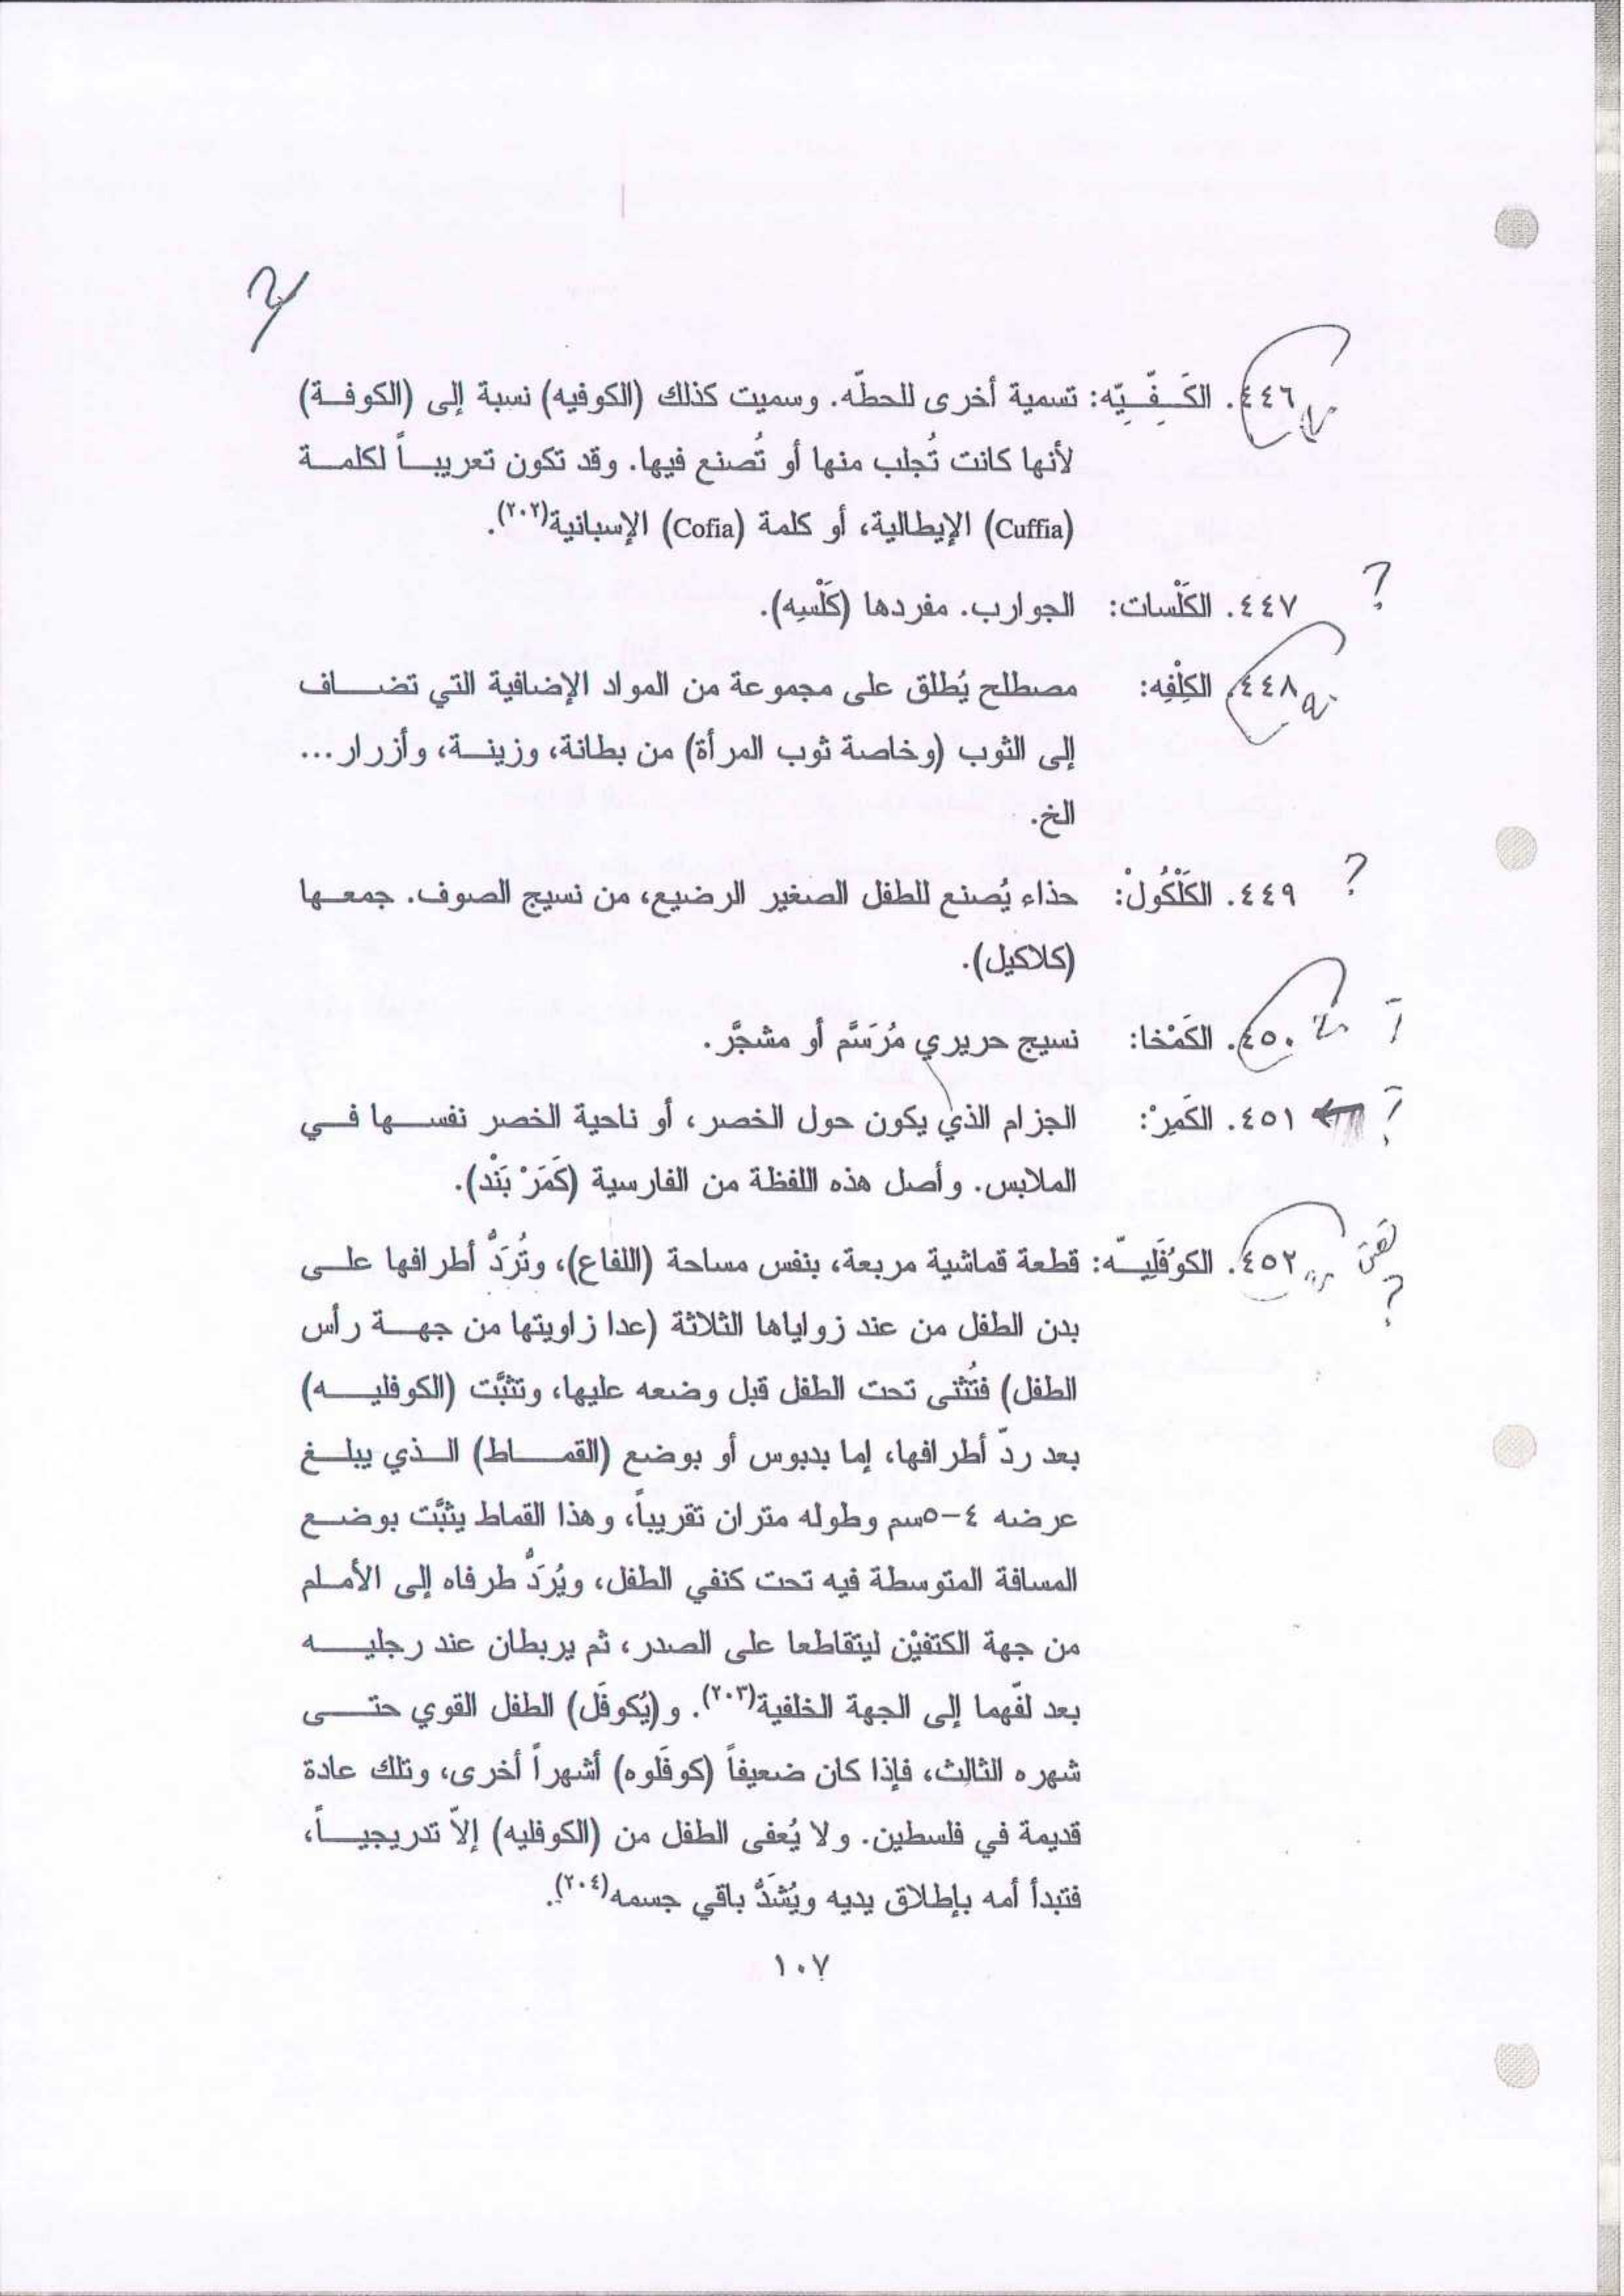 ٤٤٦. الكَفِّيِّه: تسمية أخرى للحطّه. وسميت كذلك (الكوفيه) نسبة إلى (الكوفة)
لأنها كانت تُجلب منها أو تُصنع فيها. وقد تكون تعريباً لكلمة
(Cuffia) الإيطالية، أو كلمة (Cofia) الإسبانية(٢٠٢).
٤٤٧. الكَلْسات: الجوارب. مفردها (كَلْسِه). ?
٤٤٨. الكِلْفِه: مصطلح يُطلق على مجموعة من المواد الإضافية التي تضاف
إلى الثوب (وخاصة ثوب المرأة) من بطانة، وزينة، وأزرار...
الخ.
٤٤٩. الكَلْكُولْ: حذاء يُصنع للطفل الصغير الرضيع، من نسيج الصوف. جمعها ?
(كلاكيل).
٤٥٠. الكَمْخا: نسيج حريري مُرَسَّم أو مشجَّر.
٤٥١. الكَمِرْ: الجزام الذي يكون حول الخصر، أو ناحية الخصر نفسها في
الملابس. وأصل هذه اللفظة من الفارسية (كَمَرْ بَنْد).
٤٥٢. الكوُفَلِيّه: قطعة قماشية مربعة، بنفس مساحة (اللفاع)، وتُرَدُّ أطرافها على
بدن الطفل من عند زواياها الثلاثة (عدا زاويتها من جهة رأس
الطفل) فتُثنى تحت الطفل قبل وضعه عليها، وتثبَّت (الكوفليه)
بعد ردّ أطرافها، إما بدبوس أو بوضع (القماط) الذي يبلغ
عرضه ٤-٥سم وطوله متران تقريباً، وهذا القماط يثبَّت بوضع
المسافة المتوسطة فيه تحت كنفي الطفل، ويُرَدُّ طرفاه إلى الأملم
من جهة الكتفيْن ليتقاطعا على الصدر، ثم يربطان عند رجليه
بعد لفّهما إلى الجهة الخلفية(٢٠٣). و(يُكوفَل) الطفل القوي حتى
شهره الثالث، فإذا كان ضعيفاً (كوفَلوه) أشهراً أخرى، وتلك عادة
قديمة في فلسطين. ولا يُعفى الطفل من (الكوفليه) إلاّ تدريجياً،
فتبدأ أمه بإطلاق يديه ويُشَدُّ باقي جسمه(٢٠٤).
١٠٧